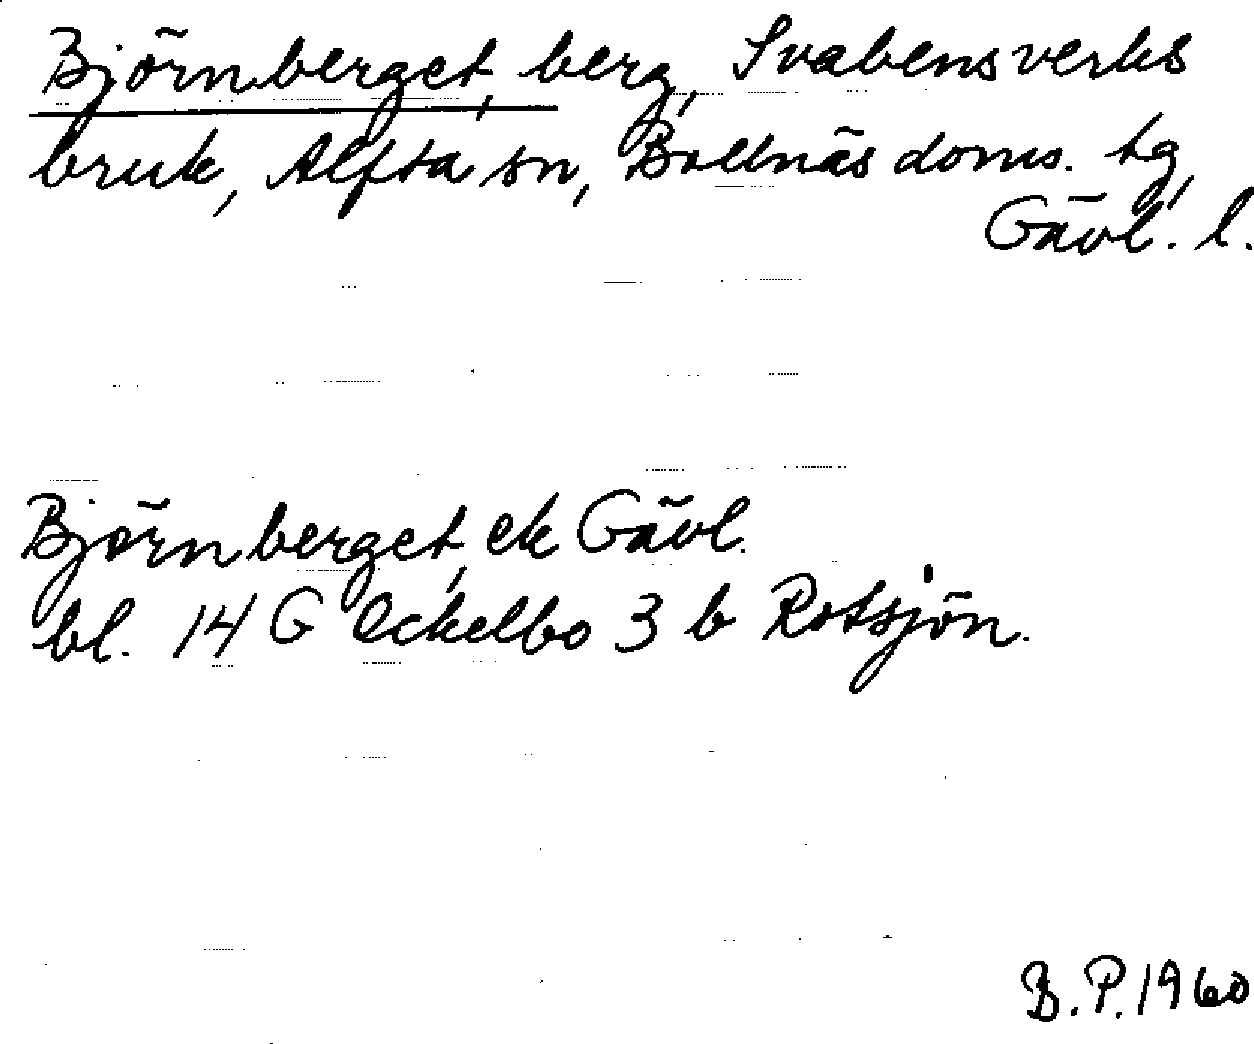 Björnberget, berg, Svabensverks
bruk, Alfta sn, Bollnäs doms. tg,
Gävl. l.
Björnberget, ek Gävl.
bl. 14 G Ockelbo 3 b Rotsjön.
B.P. 1960